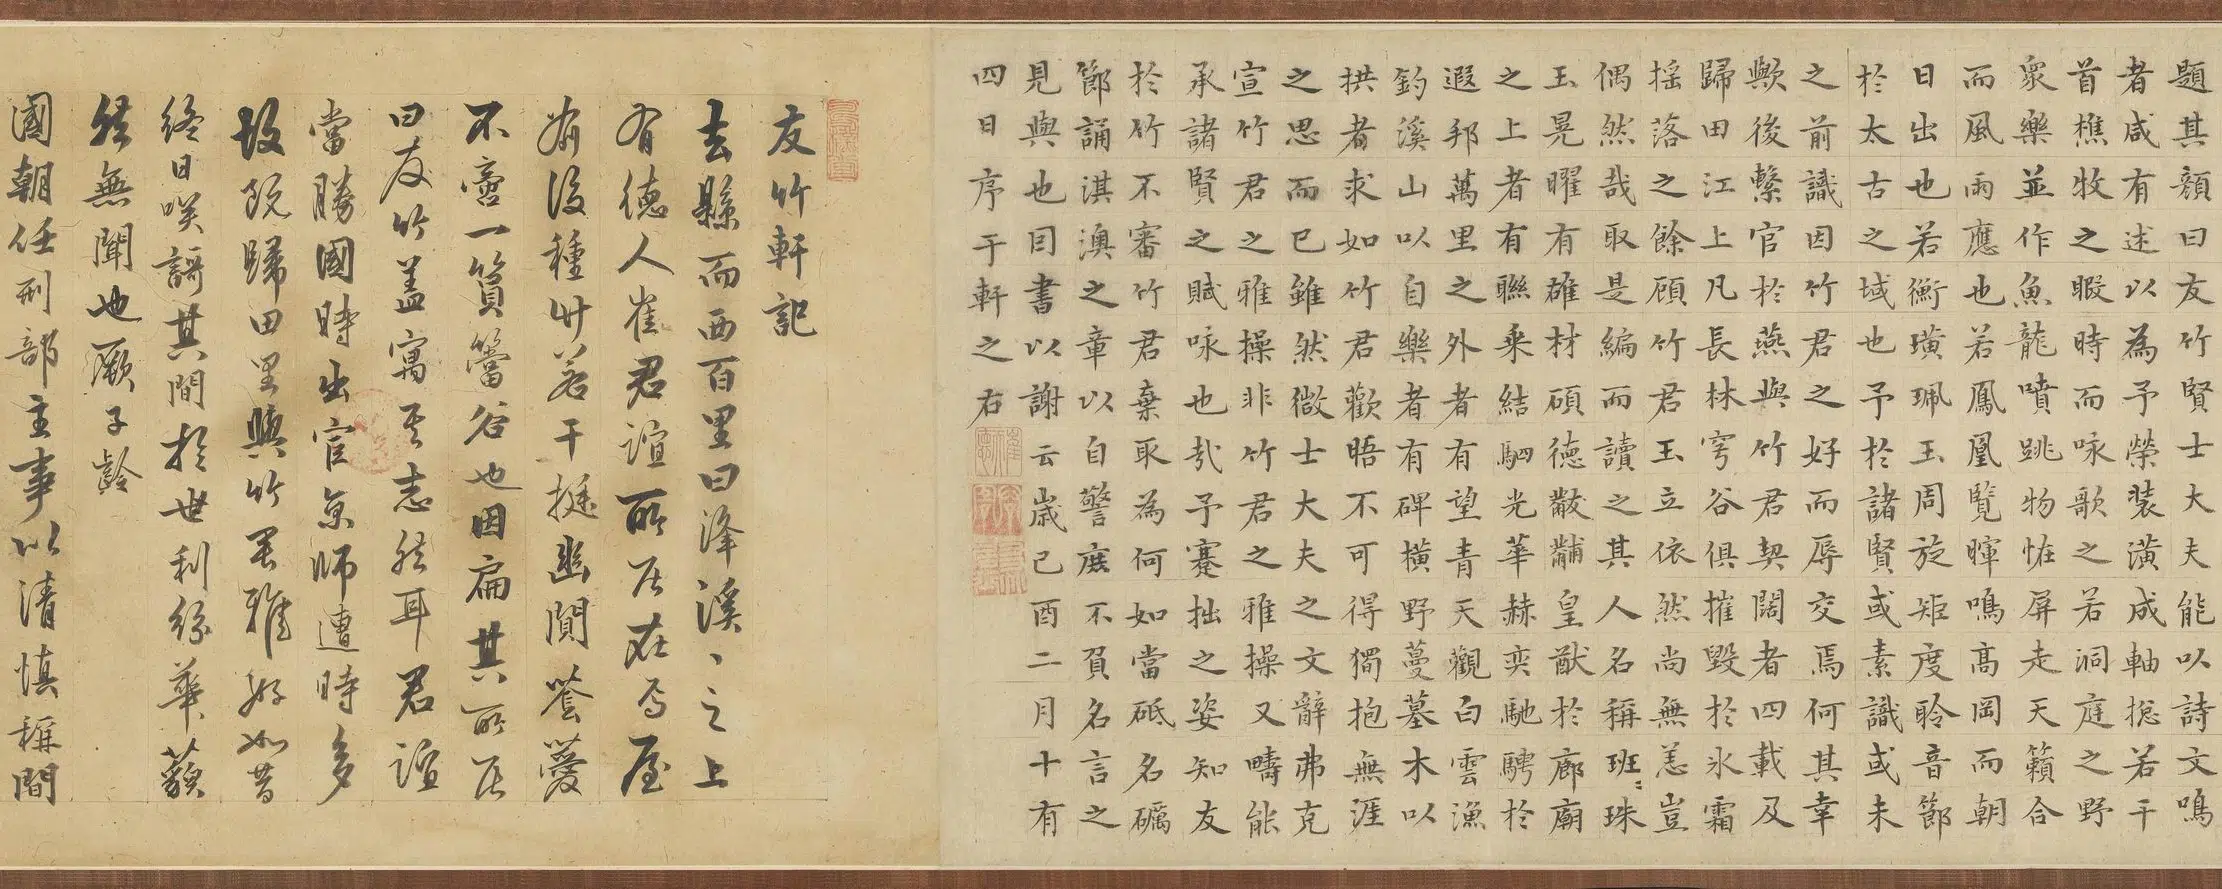 題其顏曰友竹賢士大夫能以詩文鳴
者咸有述以為予榮裝潢成軸捴若干
首樵牧之暇時而咏歌之若洞庭之野
衆樂並作魚龍噴跳物恠屏走天籟合
而風雨應也若鳳凰覽暉鳴高岡而朝
日出也若衡璜珮玉周旋矩度聆音節
於太古之域也予於諸賢或素識或未
之前識因竹君之好而辱交焉何其幸
歟後繫官於燕與竹君契闊者四載及
歸田江上凡長林穹谷俱摧毀於氷霜
揺落之餘顧竹君玉立依然尚無恙豈
偶然哉取是編而讀之其人名稱班班珠
玉晃曜有雄材碩德黻黼皇猷於廊廟
之上者有聯乗結駟光華赫奕馳騁於
遐邦萬里之外者有望青天觀白雲漁
釣溪山以自樂者有碑橫野蔓墓木以
拱者求如竹君歡晤不可得獨抱無涯
之思而已雖然微士大夫之文辭弗克
宣竹君之雅操非竹君之雅操又疇能
承諸賢之賦咏也哉予蹇拙之姿知友
於竹不審竹君棄取為何如當砥名礪
節誦淇澳之章以自警庶不負名言之
見與也囙書以謝云歲己酉二月十有
四日序于軒之右
友竹軒記
去縣而西百里曰洚溪溪之上
有德人崔君誼所居在焉屋
有後種竹若干挺幽閒蒼薆
不啻一篔簹谷也因扁其所居
曰友竹蓋寓其志然耳君誼
當勝國時出官京師遭時多
故既歸田里與竹君雅好如昔
終日咲謌其間於世利紛華藐
然無聞也厥子齡
國朝任刑部主事以清慎稱間